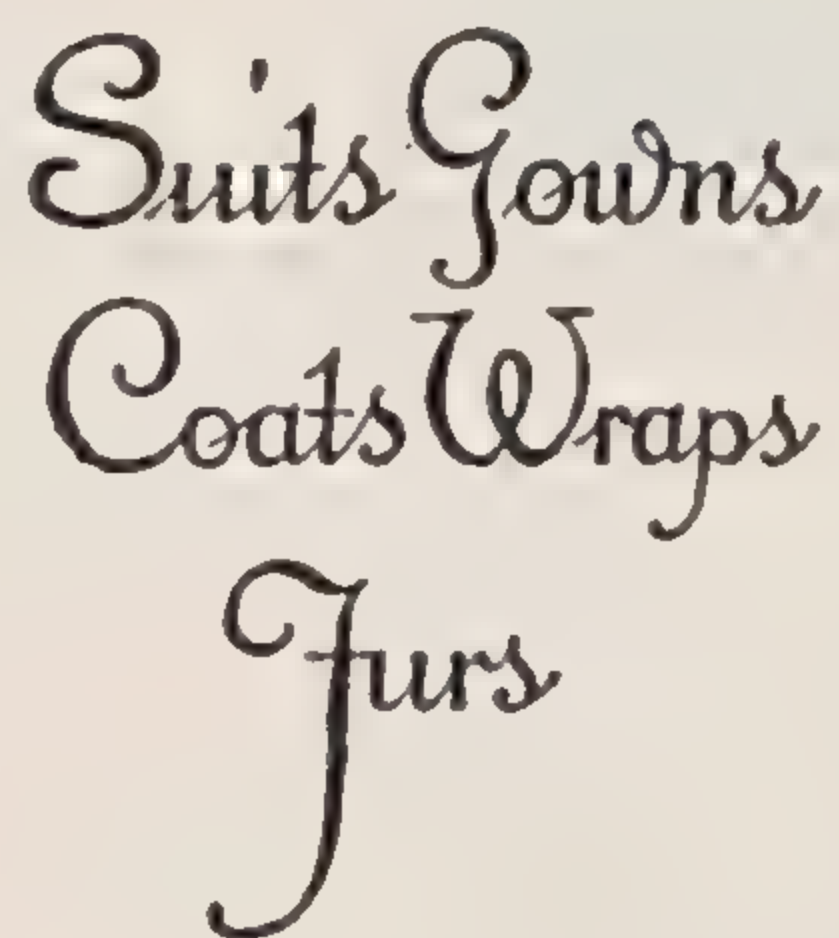 Suits Gowns
Coats Wraps
Furs